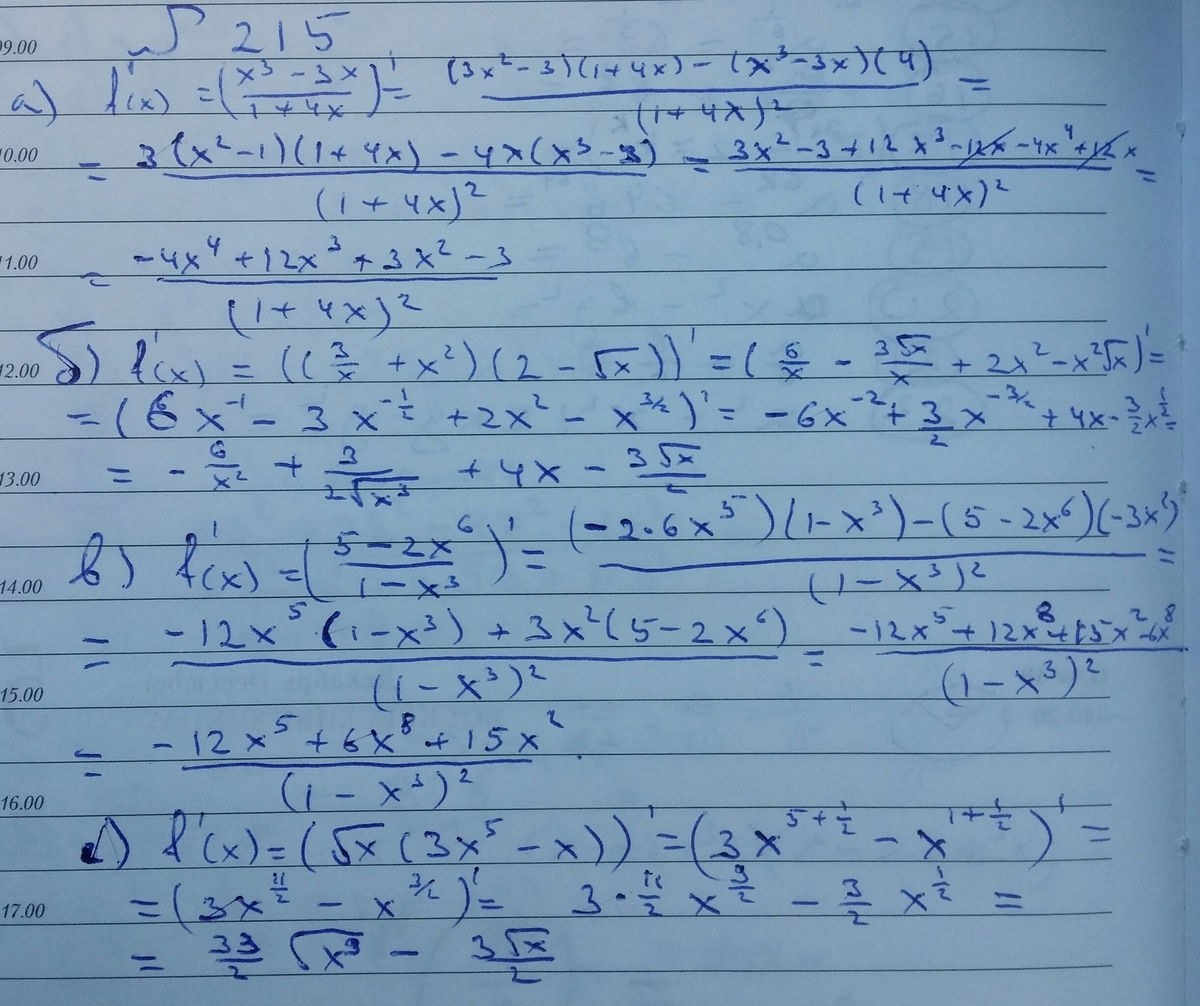 09.00 № 215
а) f'(x) = ((x³ - 3x)/(1 + 4x))' = ((3x² - 3)(1 + 4x) - (x³ - 3x)(4))/(1 + 4x)² =
10.00 = (3(x² - 1)(1 + 4x) - 4x(x³ - 3))/(1 + 4x)² = (3x² - 3 + 12x³ - 12x - 4x⁴ + 12x)/(1 + 4x)² =
11.00 = (-4x⁴ + 12x³ + 3x² - 3)/(1 + 4x)²
12.00 б) f'(x) = ((3/x + x²)(2 - √x))' = (6/x - 3√x/x + 2x² - x²√x)' =
= (6x⁻¹ - 3x^(-1/2) + 2x² - x^(3/2))' = -6x⁻² + 3/2 x^(-3/2) + 4x - 3/2 x^(1/2) =
13.00 = - 6/x² + 3/(2√x³) + 4x - 3√x/2
14.00 в) f'(x) = ((5 - 2x⁶)/(1 - x³))' = ((-2·6x⁵)(1 - x³) - (5 - 2x⁶)(-3x²))/(1 - x³)² =
15.00 = (-12x⁵(1 - x³) + 3x²(5 - 2x⁶))/(1 - x³)² = (-12x⁵ + 12x⁸ + 15x² - 6x⁸)/(1 - x³)²
16.00 = (-12x⁵ + 6x⁸ + 15x²)/(1 - x³)².
г) f'(x) = (√x (3x⁵ - x))' = (3x^(5 + 1/2) - x^(1 + 1/2))' =
17.00 = (3x^(11/2) - x^(3/2))' = 3·11/2 x^(9/2) - 3/2 x^(1/2) =
= 33/2 √x⁹ - 3√x/2